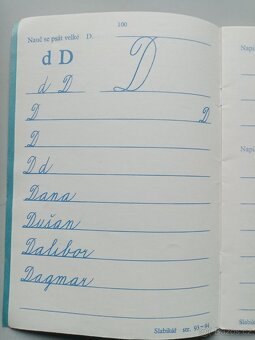 100
Nauč se psát velké D.
d D
D
d D
D D
D
D d
Dana
Dušan
Dalibor
Dagmar
Slabikář str. 93–94
Napi
Napi